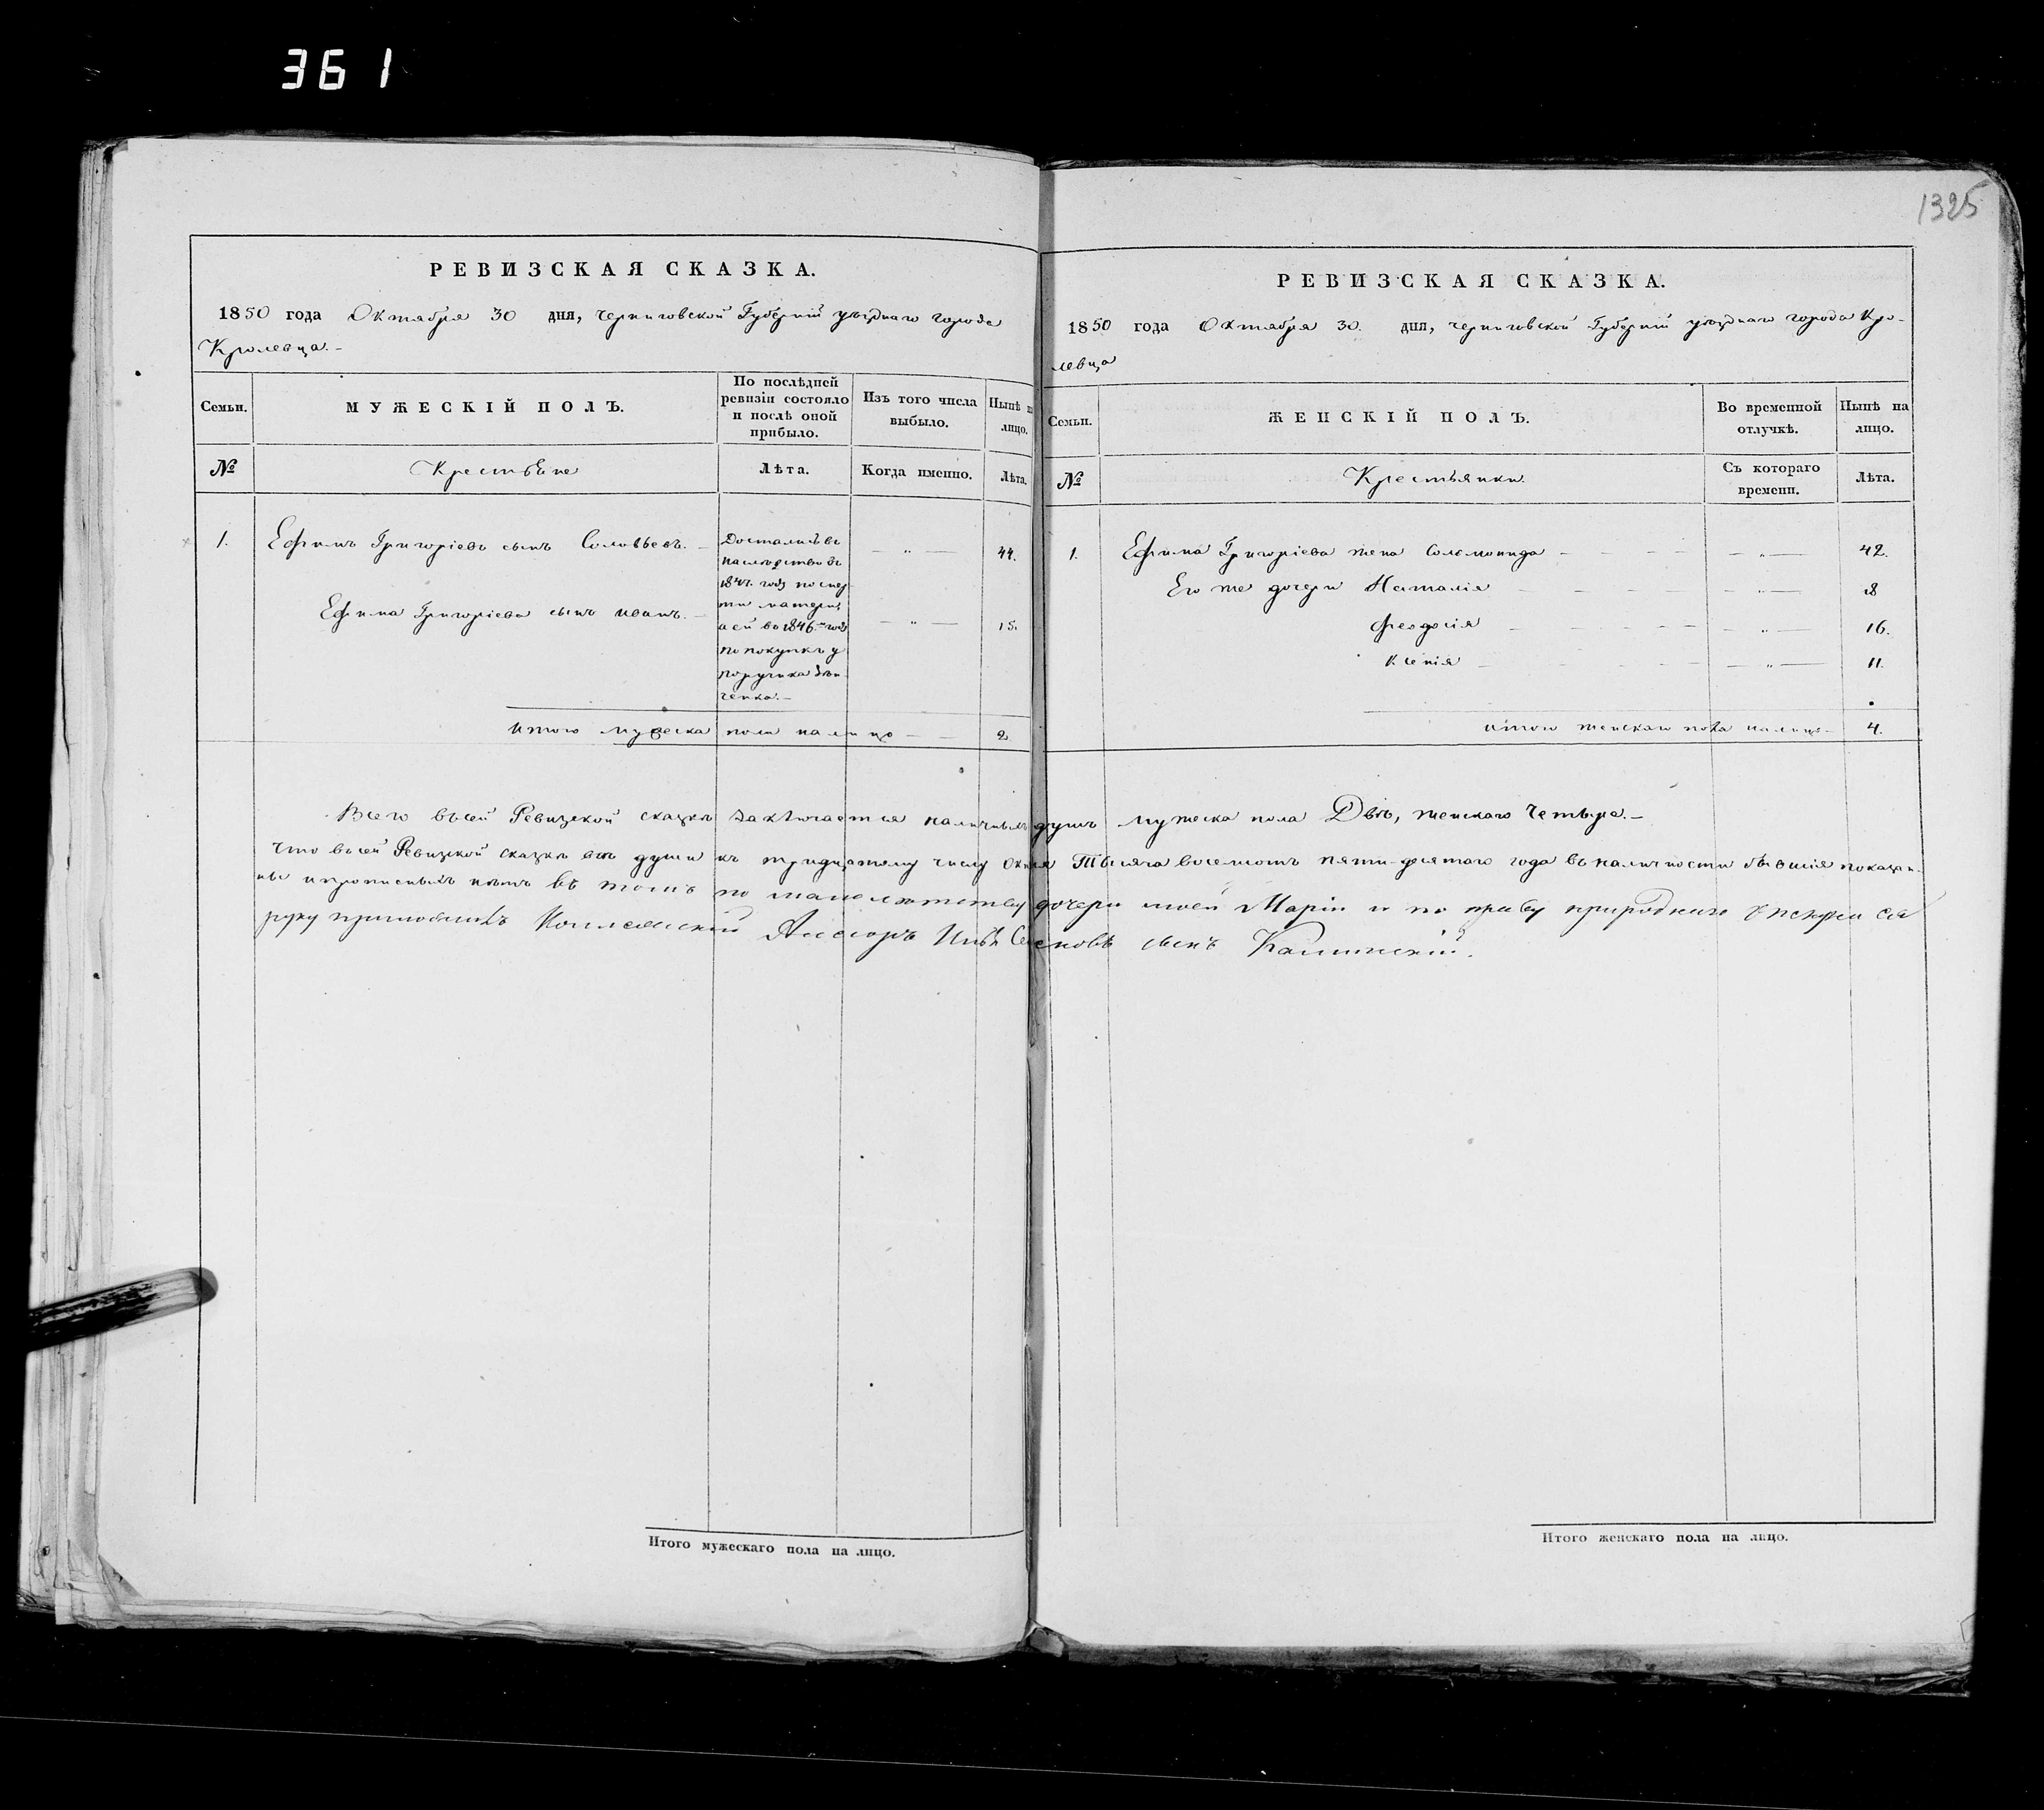 361
1325
РЕВИЗСКАЯ СКАЗКА.
1850 года Октября 30 дня, Черниговской Губерніи уѣзднаго города
Кролевца.-
Семьи.
МУЖЕСКІЙ ПОЛЪ.
По послѣдней
ревизіи состояло
и послѣ оной
прибыло.
Изъ того числа
выбыло.
Нынѣ н
лицо.
№
Крестьяне
Лѣта.
Когда именно.
Лѣта.
1. Ефимъ Григоріевъ сынъ Соловьевъ. 44.
Ефима Григоріева сынъ Иванъ. 15.
Достались въ
наслѣдство въ
году по смер
ти матери,
а ей въ 1846 году
по покупкѣ у
поручика
ченка.-
Итого мужеска пола на лицо 2
РЕВИЗСКАЯ СКАЗКА.
1850 года Октября 30. дня, Черниговской Губерніи уѣзднаго города Кро-
левца
Семьи.
ЖЕНСКІЙ ПОЛЪ.
Во временной
отлучкѣ.
Нынѣ на
лицо.
№
Крестьянки
Съ котораго
времени.
Лѣта.
1. Ефима Григоріева жена Соломонида 42.
Его же дочери Наталія 18
Феодосія 16.
Ксенія 11.
Итого женскаго пола на лицо 4.
Всего въ сей Ревизской сказкѣ заключается наличныхъ душъ мужеска пола Двѣ, женскаго Четыре.-
Что въ сей Ревизской сказкѣ всѣ души къ тридцатому числу Тысяча восемьсотъ пяти-десятаго года въ наличности бывшія показан-
ны и прописныхъ нѣтъ въ томъ по малолѣтству дочери моей Маріи и по праву природнаго Опекуна ея
руку приложилъ Коллежскій Ассесоръ сынъ
Итого мужескаго пола на лицо.
Итого женскаго пола на лицо.